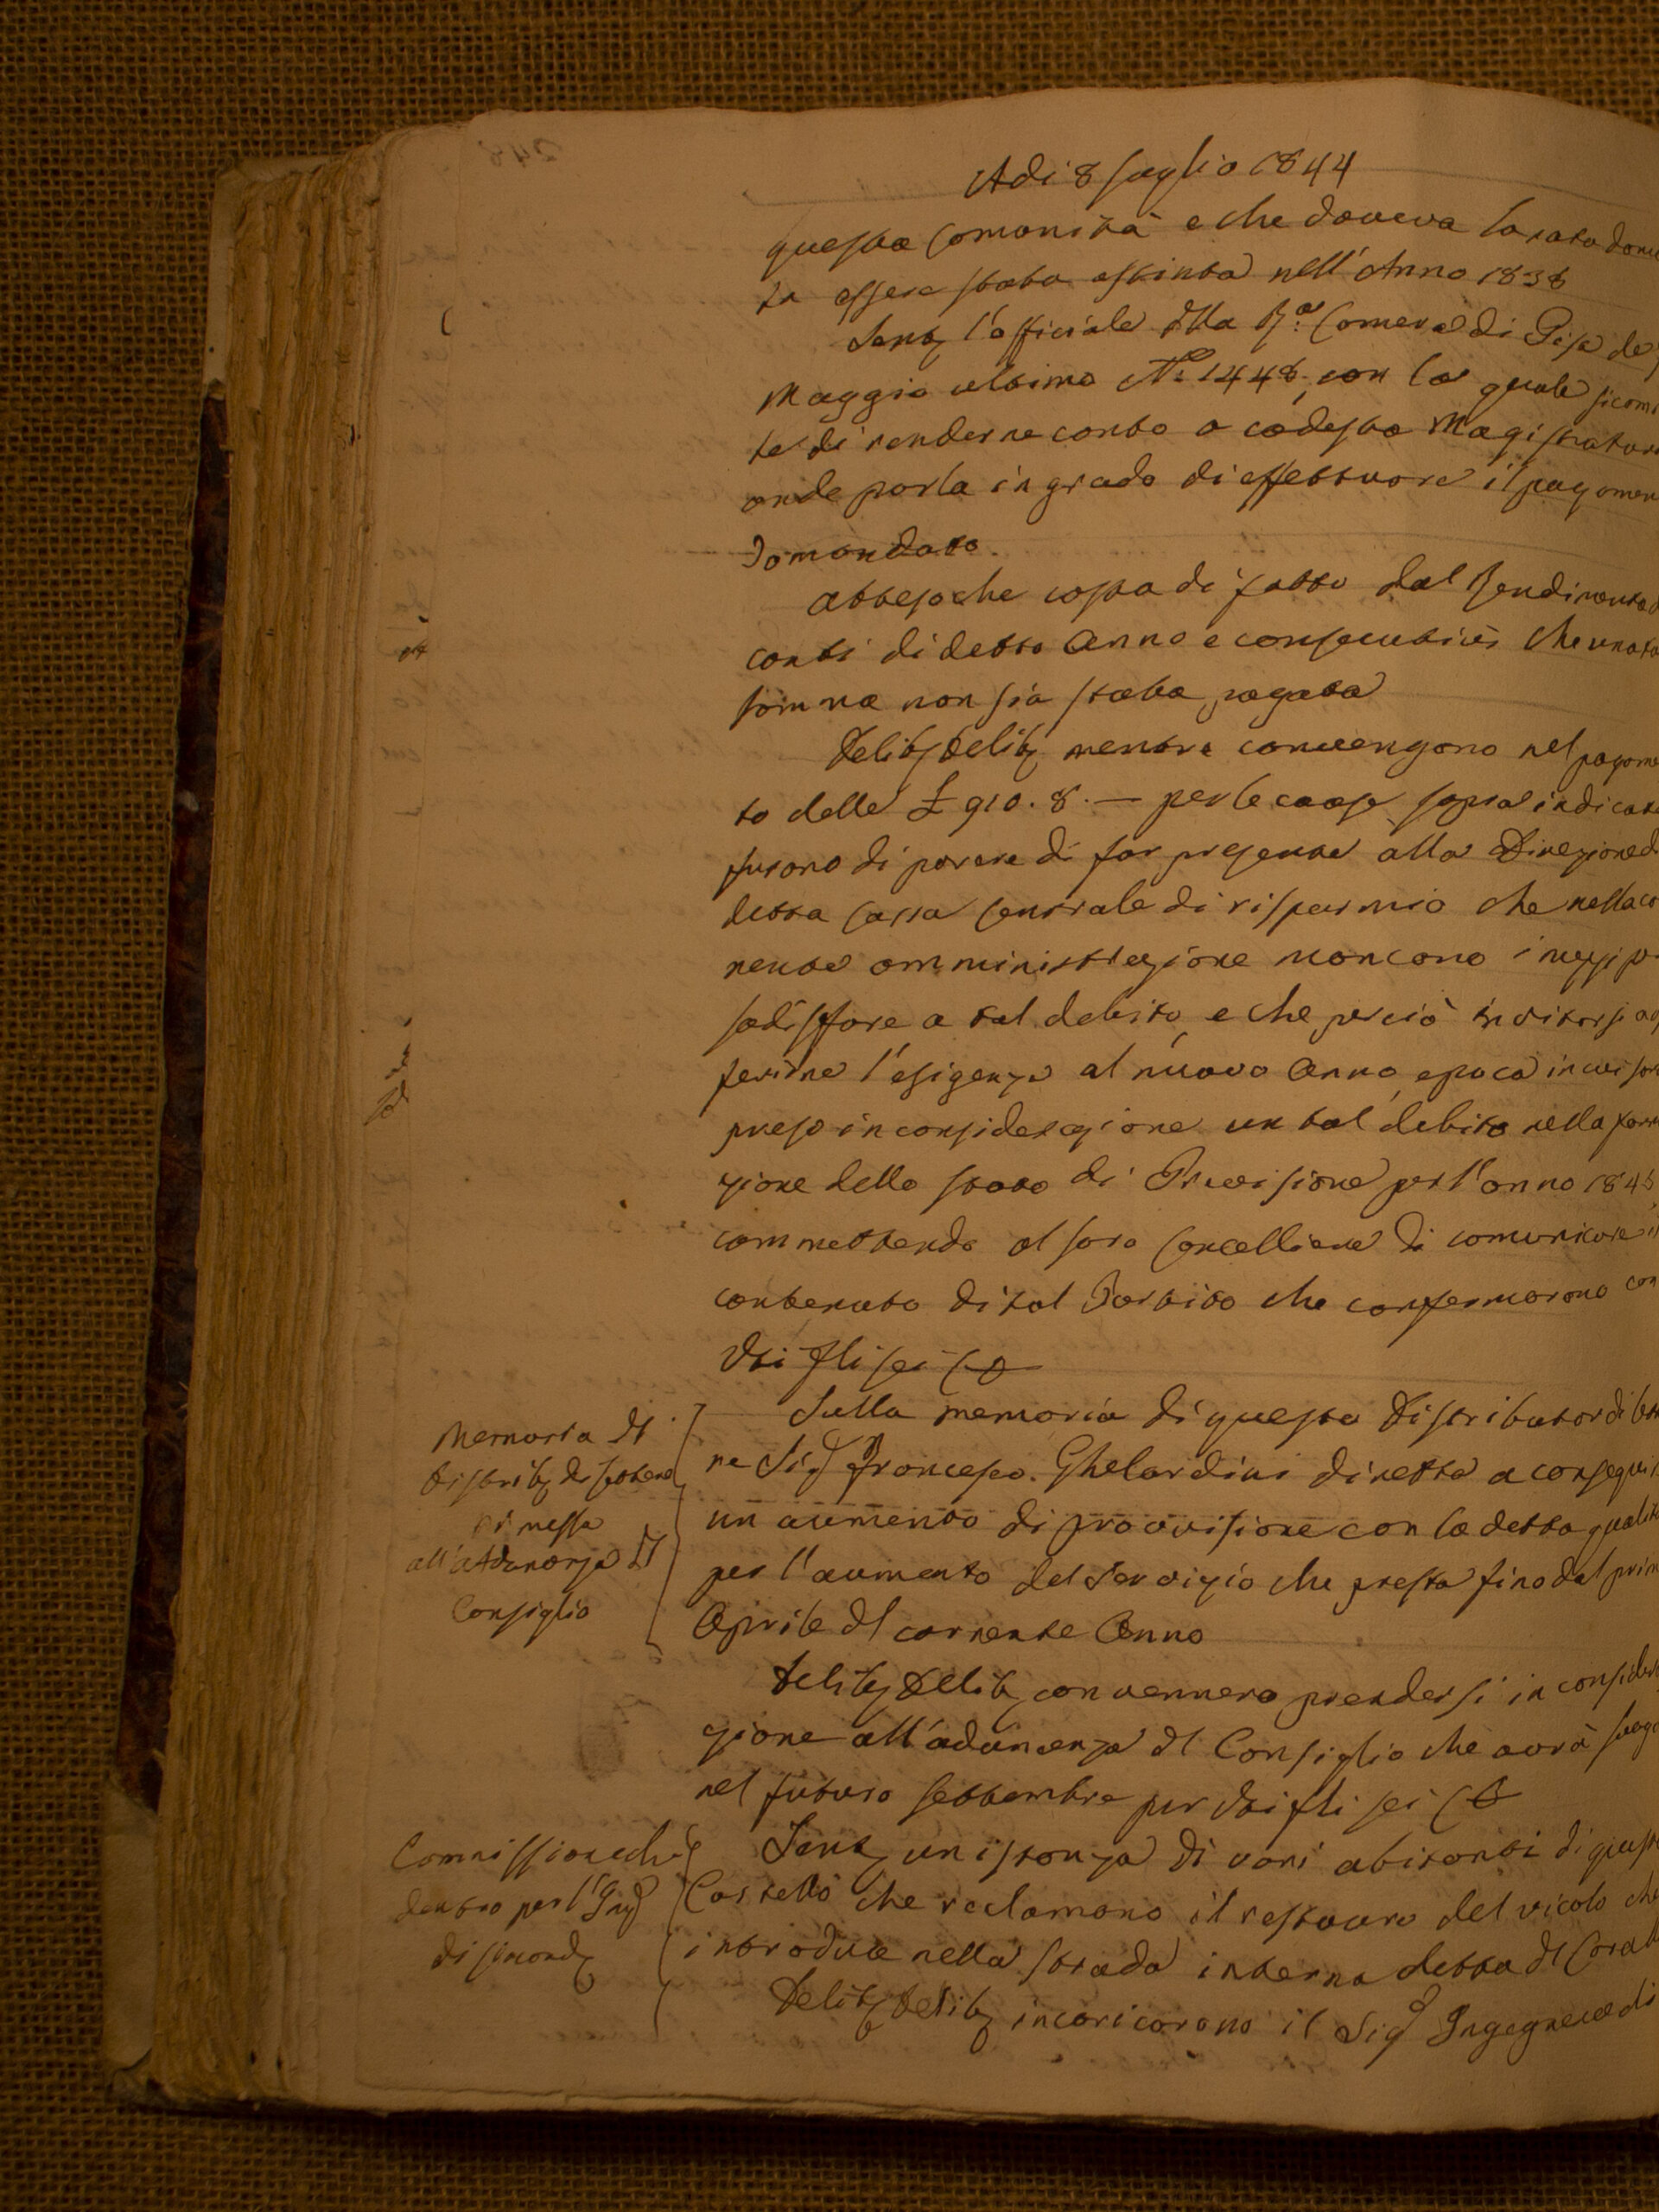 Adi 8 Luglio 1844
questa Comunità e che doveva la rata dovu
ta essere stata estinta nell'Anno 1838
Sent. l'officiale dlla R.a Camera di Pisa de
Maggio ultimo N.o 1448, con la quale si com
te di renderne conto a codesta Magistratura
onde porla in grado di effettuare il pagamen
domandato.
Attesoche costa di fatto dal Rendimento d
conti di detto Anno e consecutivi che
somma non sia stata pagata
Delib. Delib. mentre convengono nel pagame
to delle £ 910. 8. — per le cause sopra indicate
furono di parere di far presente alla Direzione d
detta Cassa Centrale di risparmio che nella co
rente amministrazione mancano i mezzi p
sadisfare a tal debito, e che perciò
ferirne l'esigenza al nuovo Anno, epoca in cui sar
preso in considerazione un tal debito nella form
zione dello stato di Previsione per l'anno 1845
commettendo al loro Cancelliere di comunicare il
contenuto di tal Partito che confermarono con
Vti fli sei C
Memoria dl
Distrib. di Lettere
rimessa
all'Adunanza dl
Consiglio
Sulla memoria di questo Distributor di lette
re Sig. Francesco Ghelardini diretta a consegui
un aumento di provvisione con la detta qualità
per l'aumento del Servizio che presta fino dal prim
Aprile dl corrente Anno
Delib. Delib. convennero prendersi in consider
zione all'adunanza dl Consiglio che avrà luogo
nel futuro Settembre per Vti fli sei C
Commissione che
dentro per l'Ing.
di
Sent. un istanza di vari abitanti di questo
Castello che reclamano il restauro del vicolo che
introduce nella strada interna detta dl
Delib. Delib. incaricarono il Sig. Ingegnere di